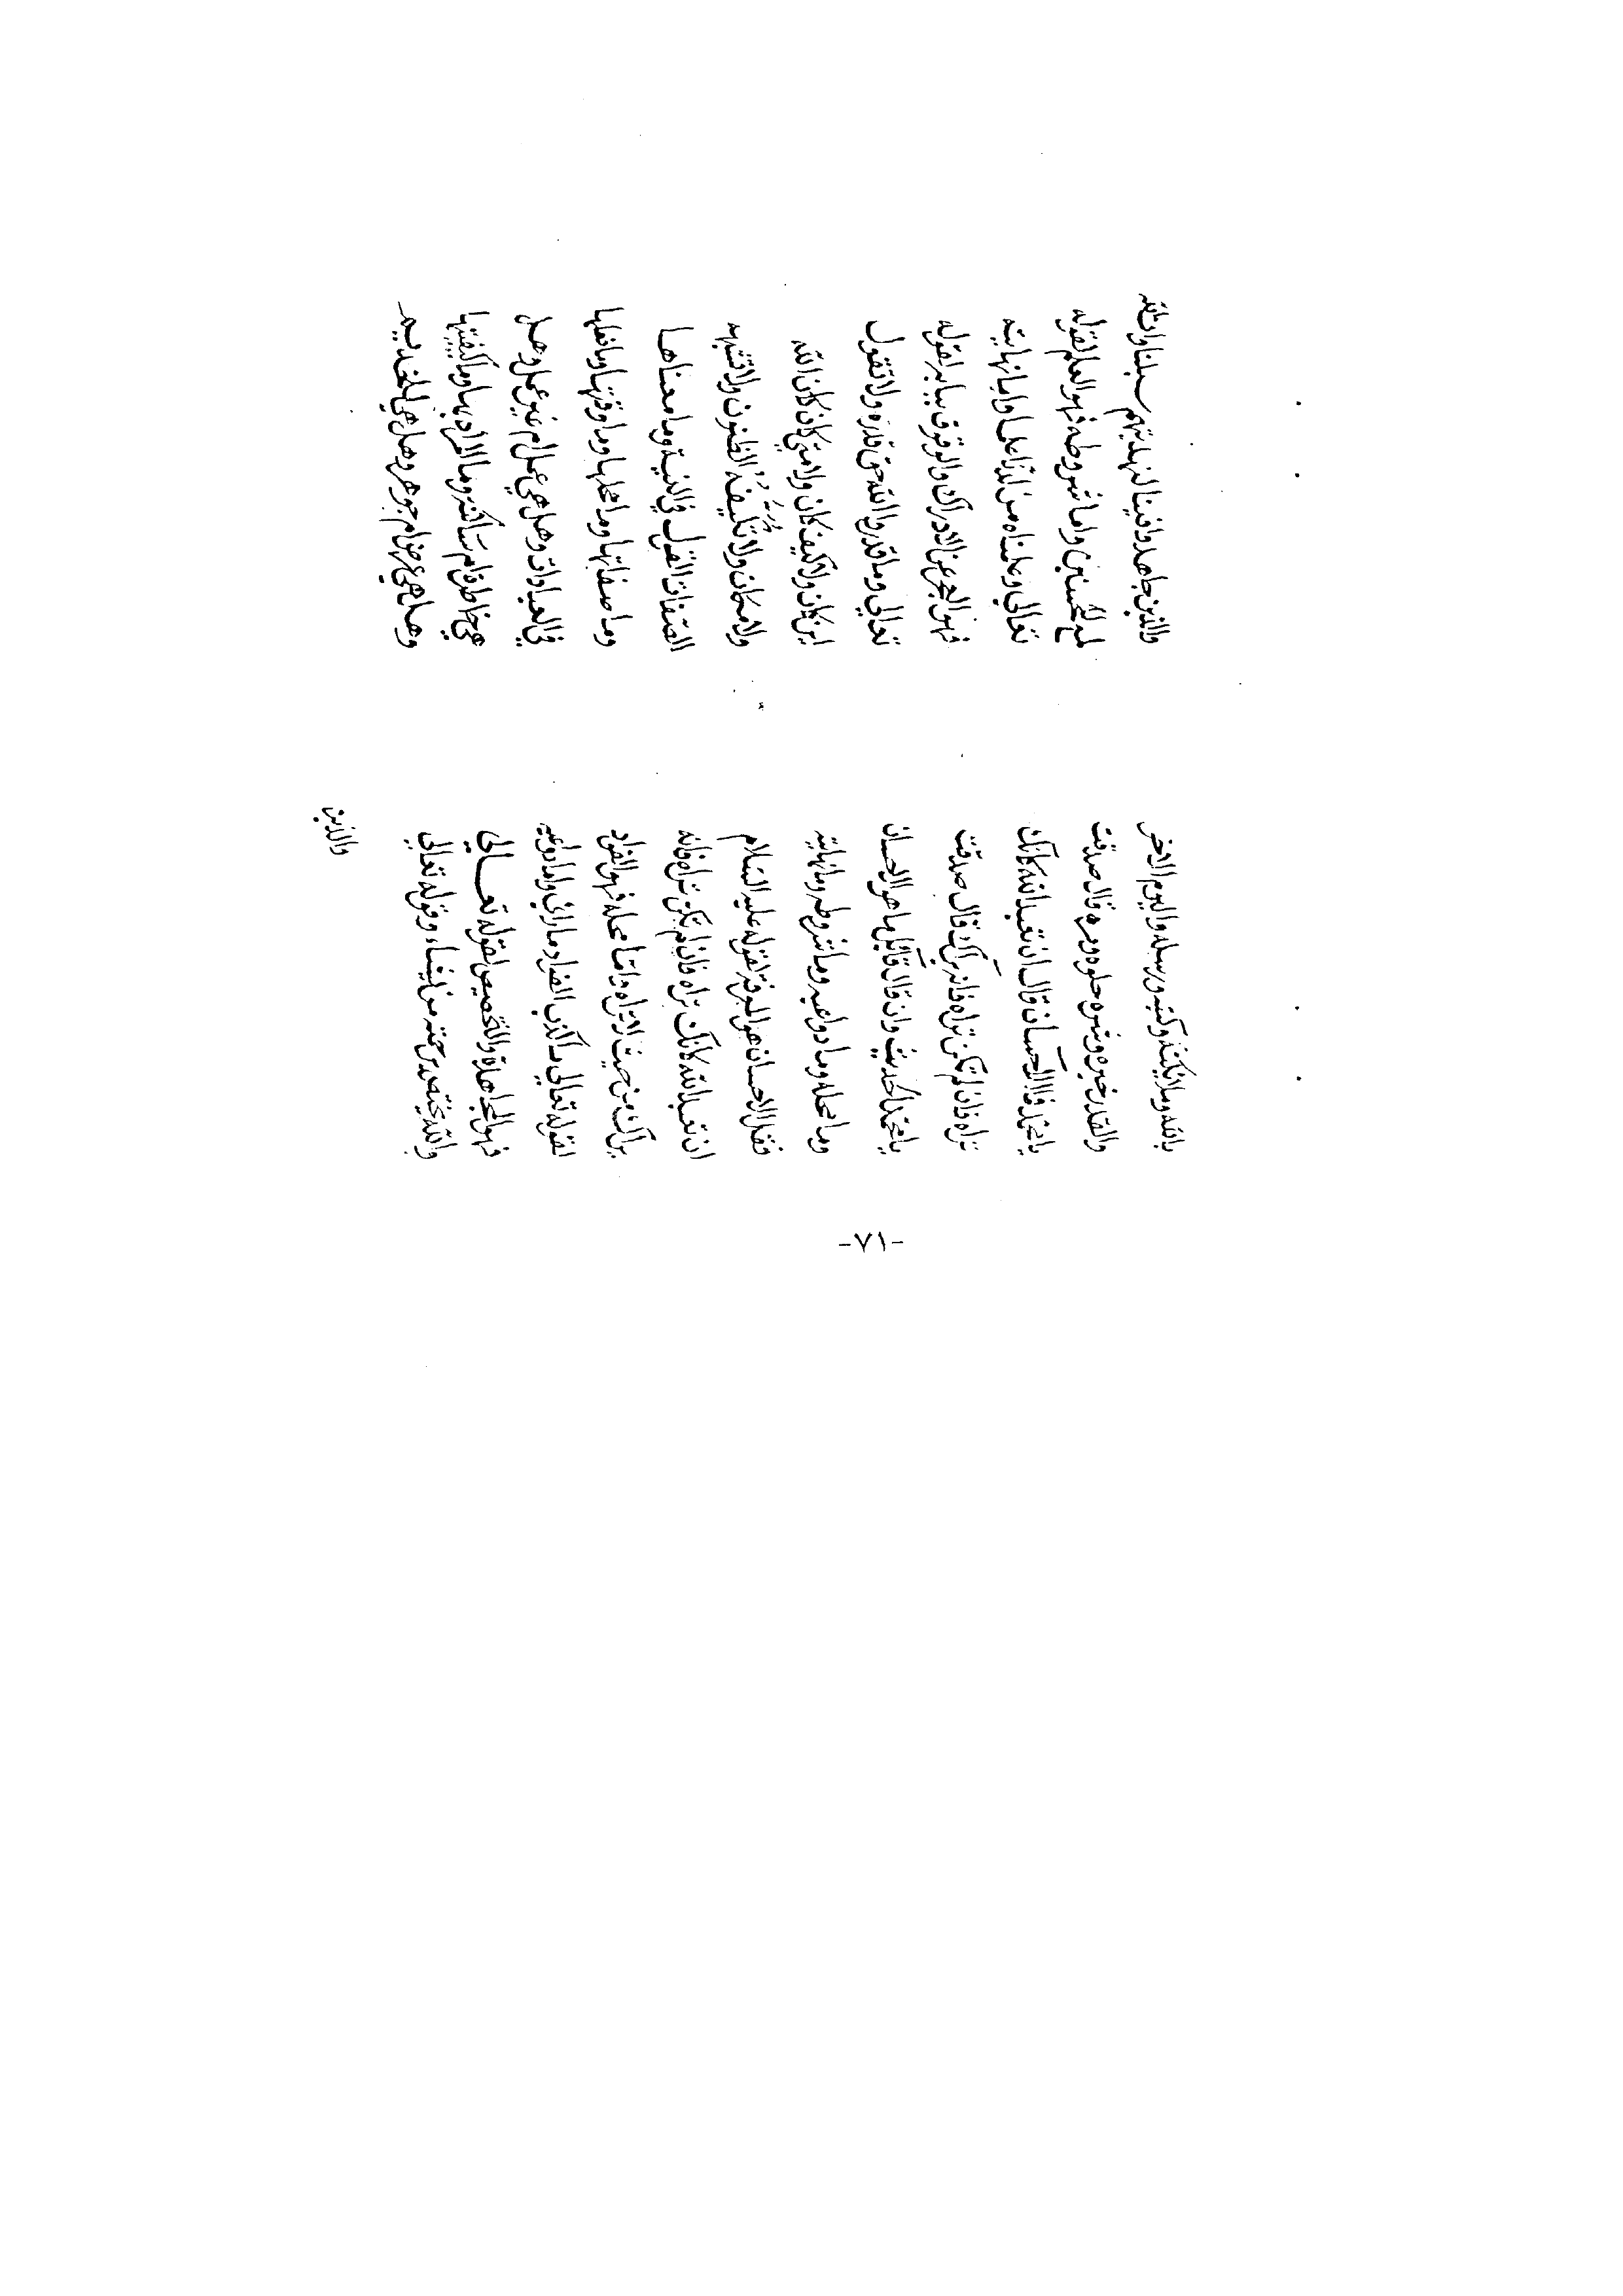 بالله وملايكته وكتبه ورسله واليوم الاخر
والقدر خيره وشره حلوه ومره قال صدقت
يا محمد فما الاحسان قال ان تعبد الله كانك
تراه فان لم تكن تراه فانه يراك قال صدقت
يا محمد الحديث وان قال قائل ما هو الاحسان
وما محله وما دواعيه وما شروطه وما نهايته
فقل الاحسان هو المعرفة لقوله عليه السلام
ان تعبد الله كانك تراه فان لم تكن تراه فانه
يراك من حيث لا تراه واما محله فهو الفواد
لقوله تعالى ما كذب الفواد ما راى واما دواعيه
فهو المجاهدة والتخصيص لقوله تعالى
والله يختص برحمته من يشاء وقوله تعالى
والذين
والذين جاهدوا فينا لنهدينهم سبلنا وان الله
لمع المحسنين واما شروطه فهو العلم لقوله
تعالى وعلمناه من لدنا علما واما نهايته
فهو العجز عن الادراك والوقوف ببابه لقوله
تعالى وما قدروا الله حق قدره ولا تقول
اين كان ولا كيف كان ولا متى كان كان الله
ولا مكان ولا تكيفه الظنون ولا تشبهه
الصفات القول في النية وما معناها
وما صفاتها وما محلها وما وقتها وما فعلها
في العبادات وهل هي عمل ام غير عمل وهل
هي خاطر ام ساكنة وما المراد بها وما كيفيتها
وهل هي عرض ام جوهر وهل هي
-٧١-